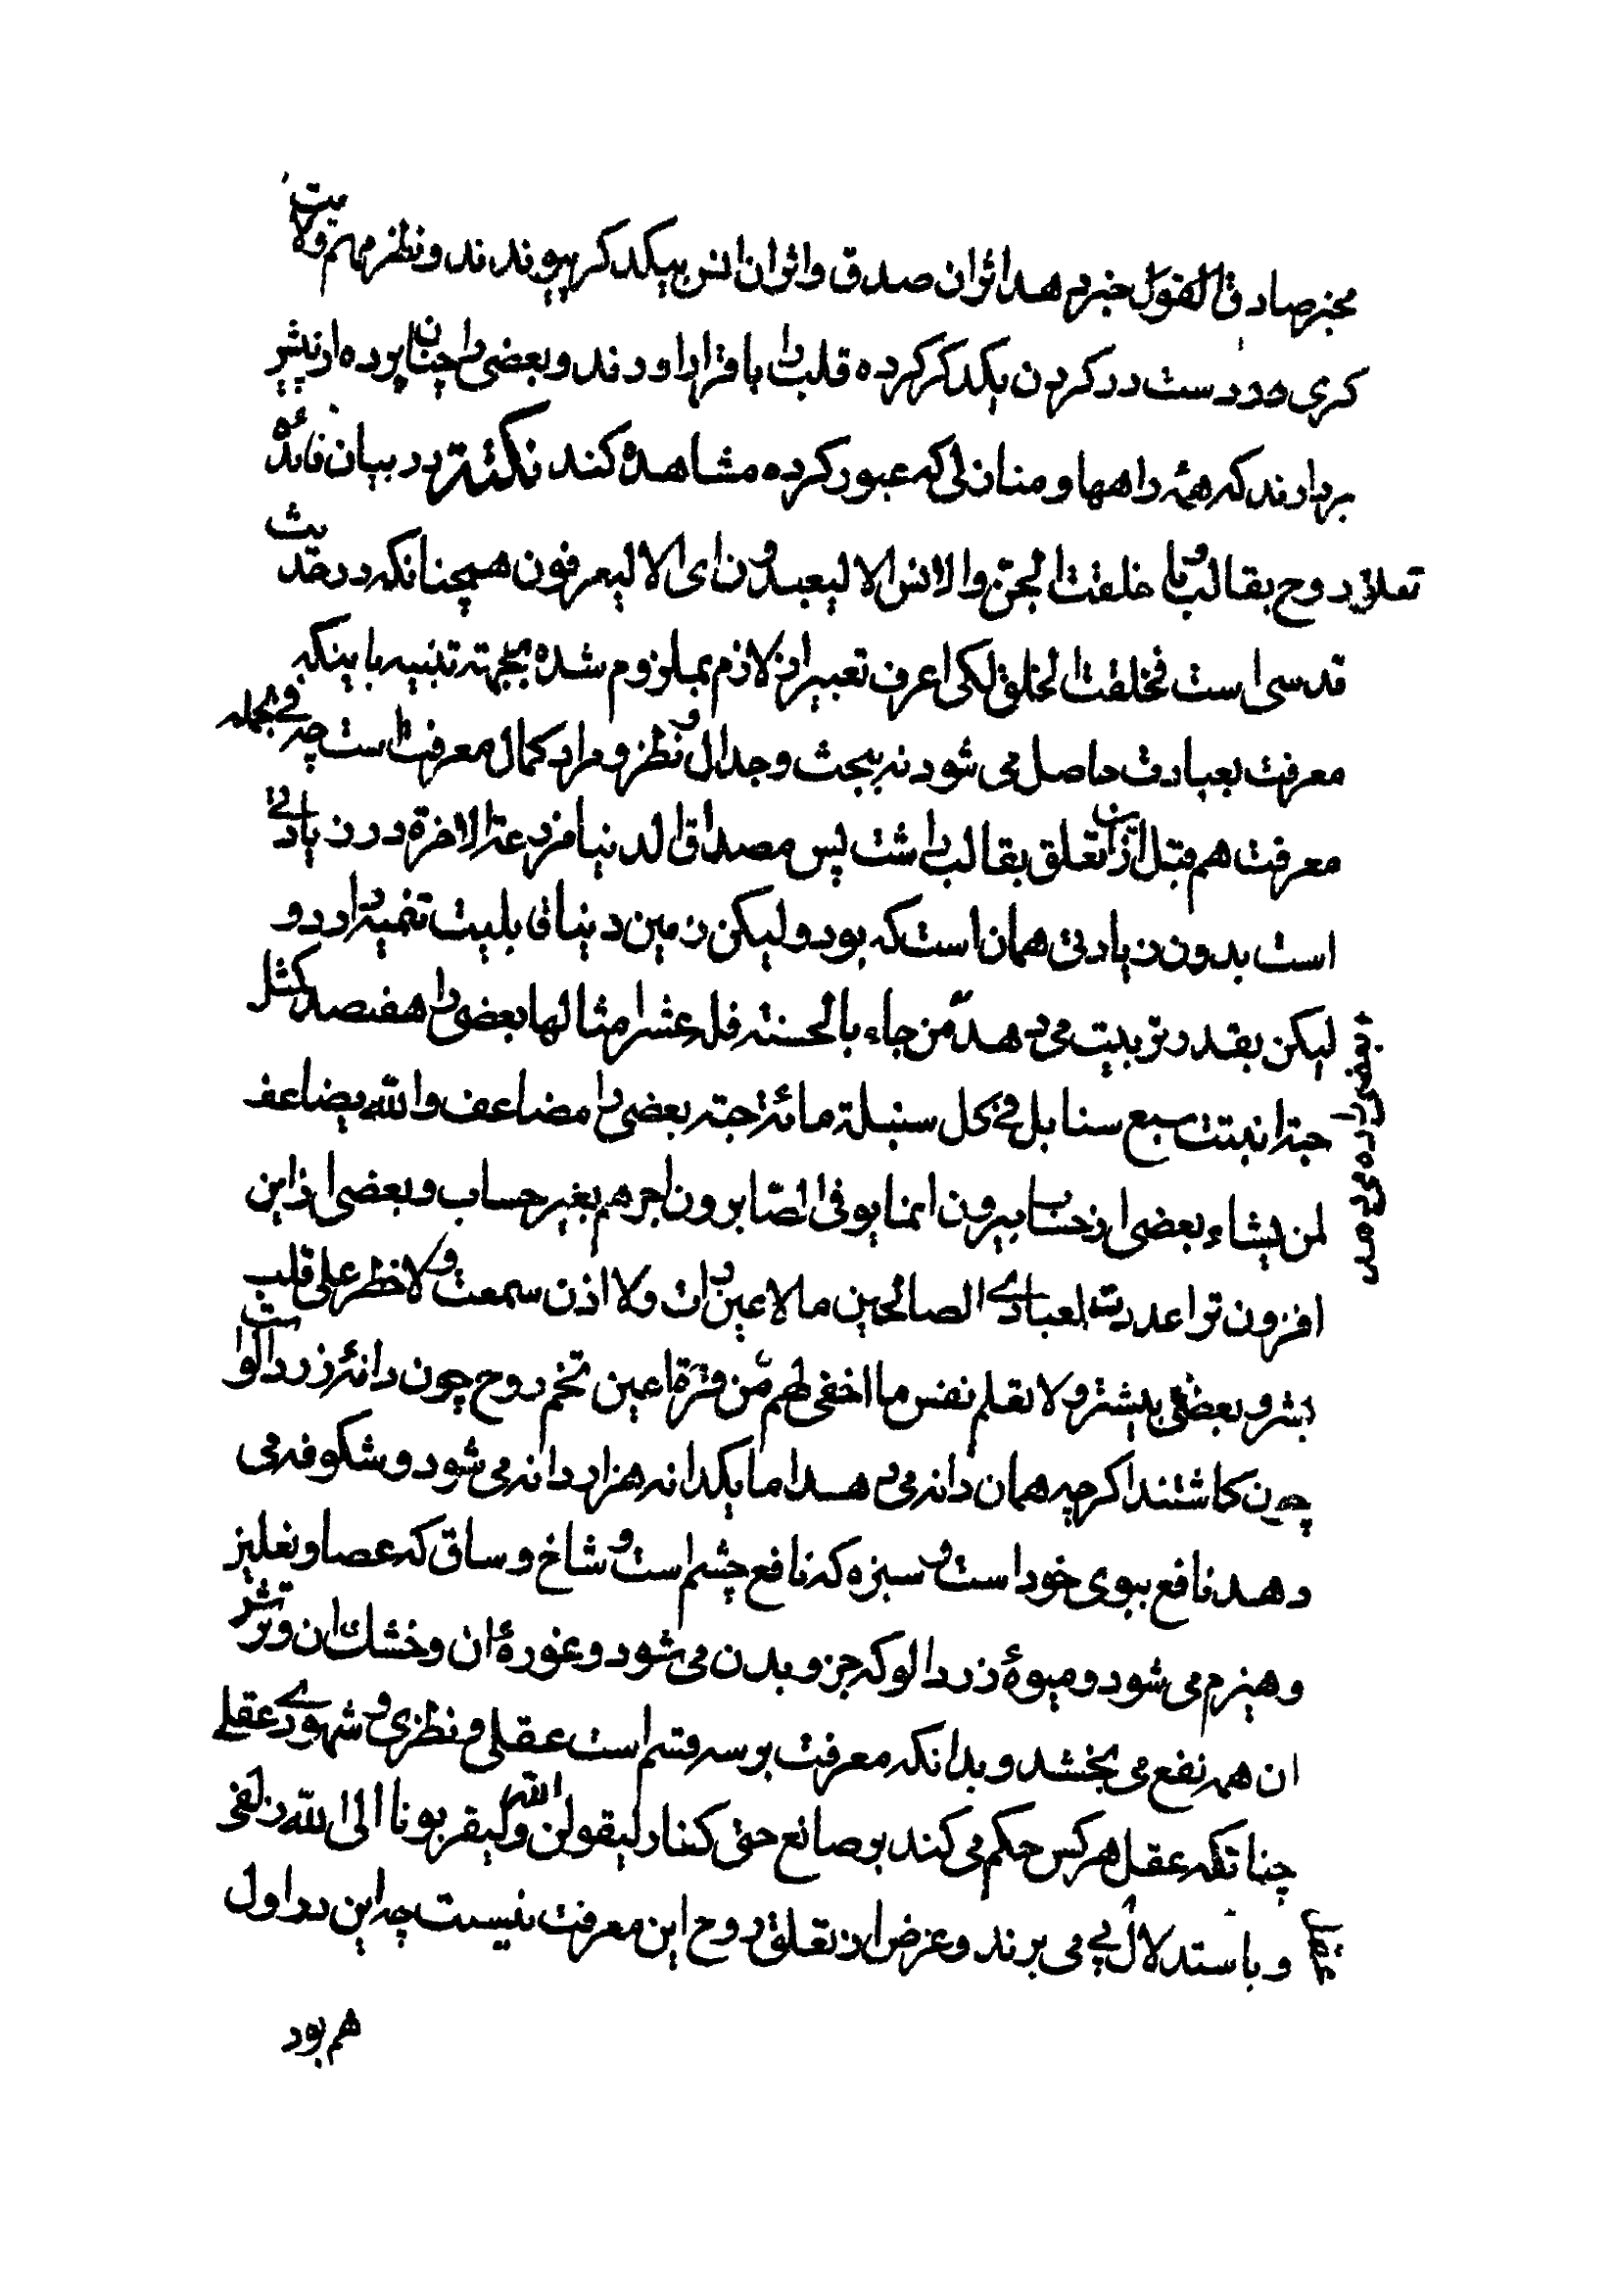 مخبر صادق القول خبر دهد اثر ان صدق واثر ان انس بیکدکر پیوندند ونظر مهم ولایت
کری دست در کردن یکدکر کرده قلب را باقرار اورند وبعضی را چنان پرده از پیش
بردارند که همه راهها ومنازلی که عبور کرده مشاهده کند نکتة در بیان فائده
تعلق روح بقالب وما خلقت الجن والانس الا لیعبدون ای الا لیعرفون همچنانکه در حدیث
قدسی است فخلقت الخلق لکی اعرف تعبیر از لازم بملزوم شده بجهته تنبیه باینکه
معرفت بعبادت حاصل می شود نه ببحث وجدال ونظر ومراد کمال معرفت است چه فی الجمله
معرفت هم قبل از ان تعلق بقالب داشت پس مصداق الدنیا مزرعة الاخرة در زیادتی
است بدون زیادتی همان است که بود ولیکن زمین دنیا قابلیت تنمیه دارد و
لیکن بقدر تربیت می دهد من جاء بالحسنته فله عشر امثالها بعضی را هفتصد کمثل
بعضی را ده می دهد
حبته انبتت سبع سنابل فی کل سنبلة مائة حبته بعضی را مضاعف والله یضاعف
لمن یشاء بعضی از حساب بیرون انما یوفی الصابرون اجرهم بغیر حساب وبعضی از این
افزون تر اعددت لعبادی الصالحین ما لا عین رات ولا اذن سمعت ولا خطر علی قلب
بشر وبعضی بیشتر ولا تعلم نفس ما اخفی لهم من قرة اعین تخم روح چون دانهٔ زردالو است
چون کاشتند اکرچه همان دانه می دهد اما یکدانه هزار دانه می شود وشکوفه می
دهد نافع ببوی خود است وسبزه که نافع چشم است وشاخ وساق که عصا ونعلین
وهیزم می شود ومیوهٔ زردالو که جزو بدن می شود وغورهٔ ان وخشک ان وترش
ان همه نفع می بخشد وبدانکه معرفت بر سه قسم است عقلی ونظری وشهودی عقلی
چنانکه عقل هرکس حکم می کند بر صانع حتی کفار لیقولن الله ولیقربونا الی الله زلفی
وباستدلال پی می برند وغرض از تعلق روح این معرفت نیست چه این در اول
هم بود